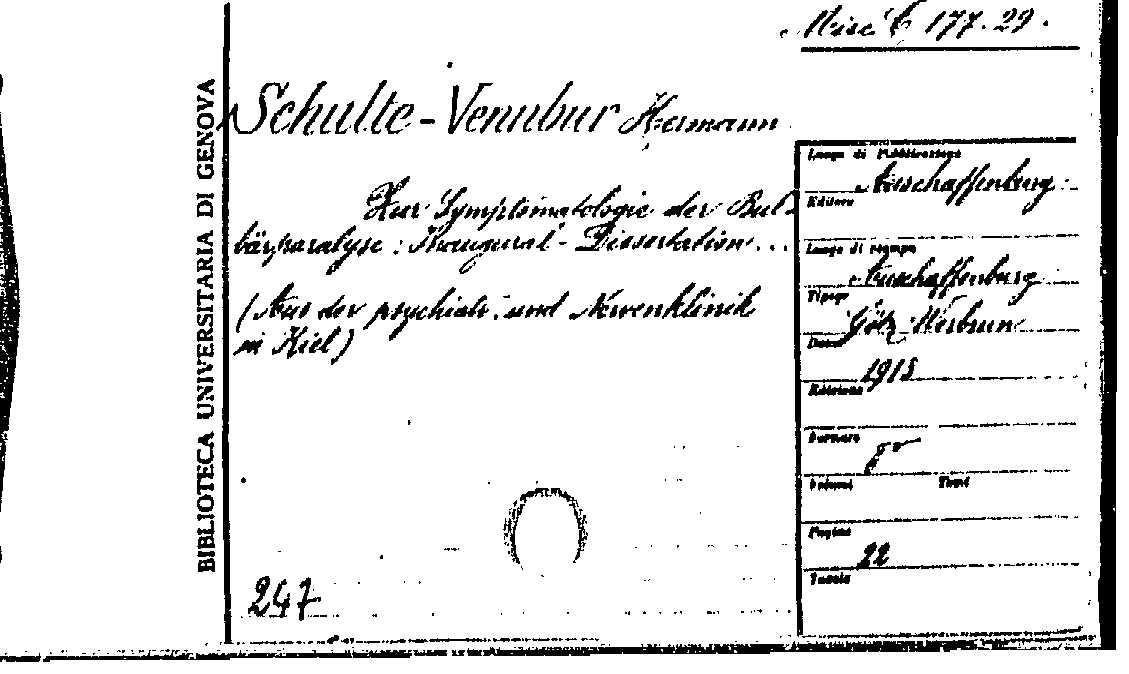 Misc. C 177. 29.
BIBLIOTECA UNIVERSITARIA DI GENOVA
Schulte-Venubur Hermann
Zur Symptomatologie der Bul-
bärparalyse: Inaugural-Dissertation...
(Aus der psychiatr. und Nervenklinik
in Kiel)
247
Luogo di Pubblicazione
Aschaffenburg
Editore
Luogo di stampa
Aschaffenburg
Tipogr
Götz
Data
1915
Edizione
Formato
8°
Volumi Tomi
Pagine
22
Tavole